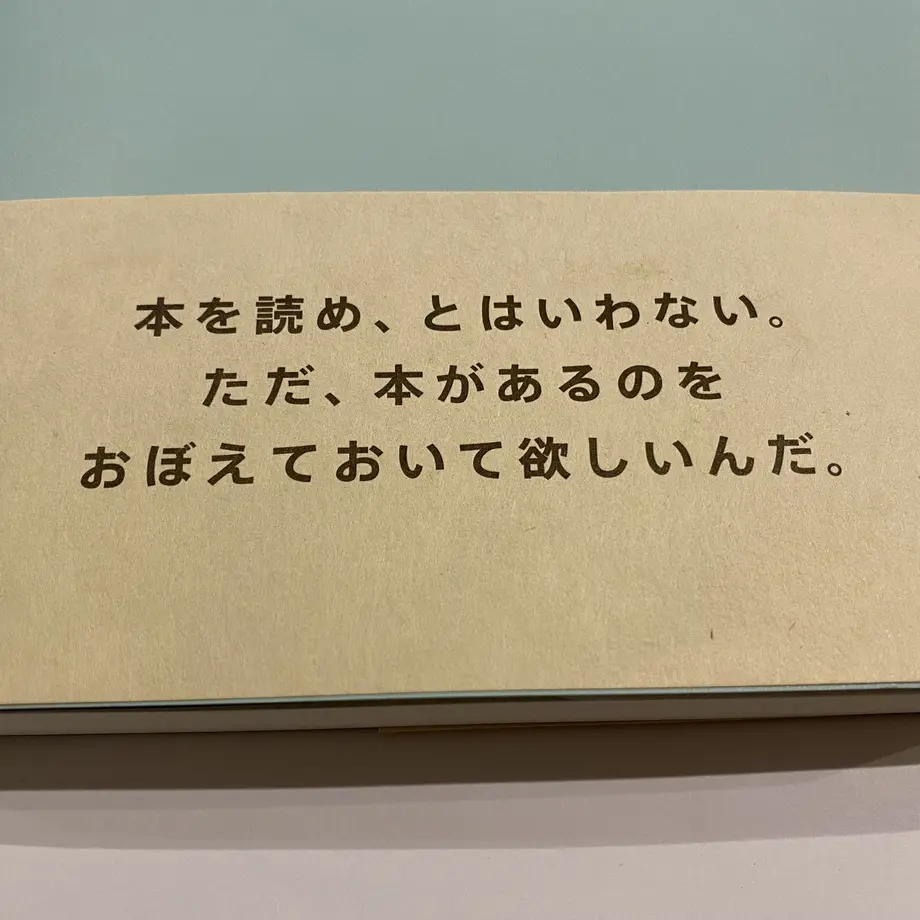 本を読め、とはいわない。
ただ、本があるのを
おぼえておいて欲しいんだ。